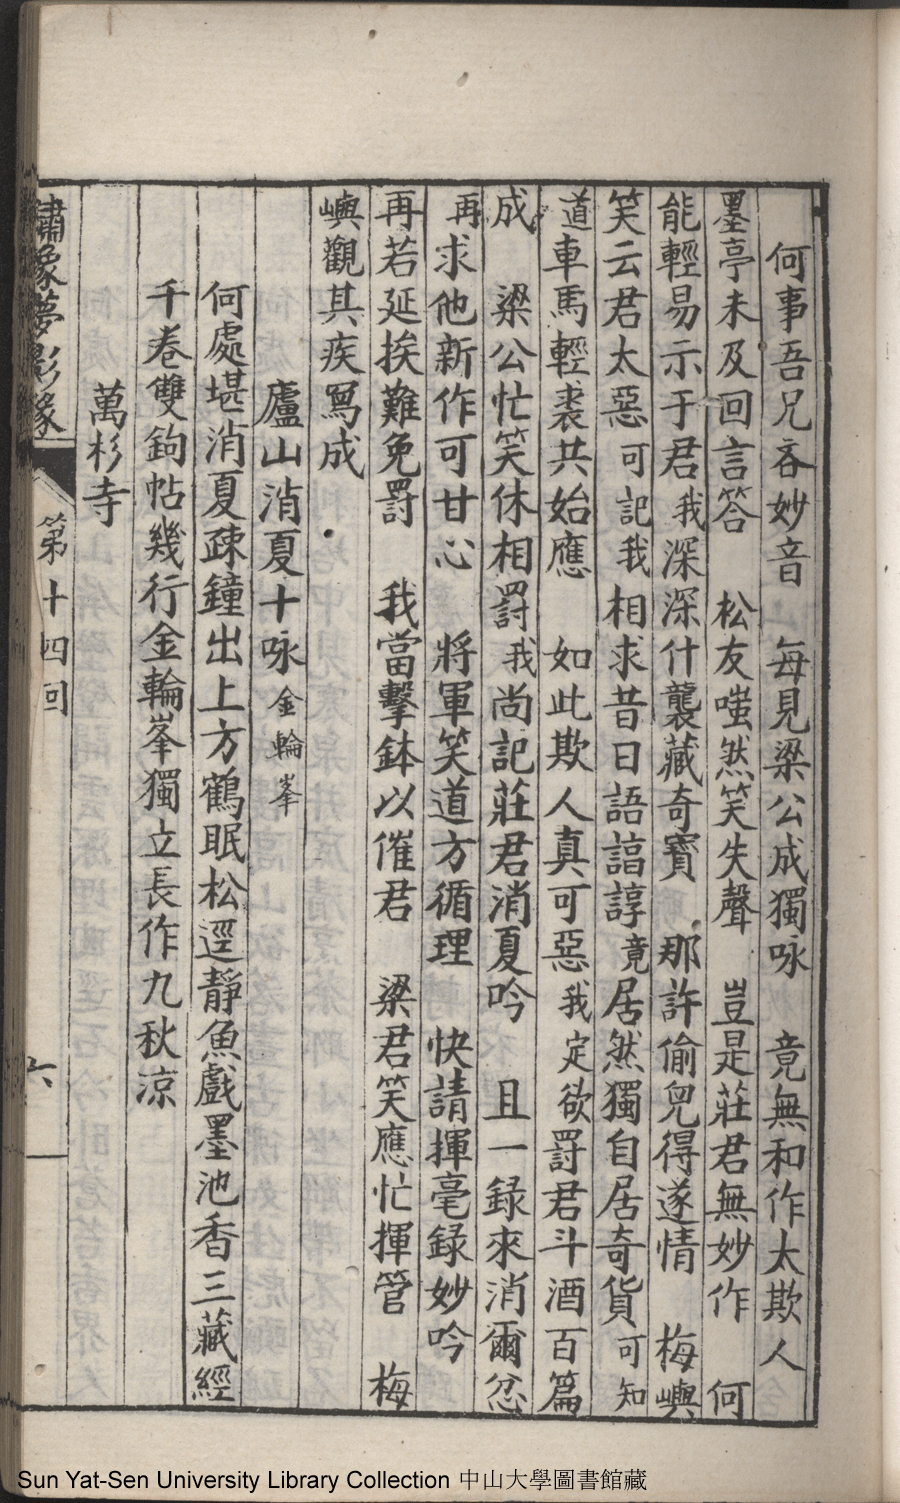 何事吾兄吝妙音　每見梁公成獨咏　竟無和作太欺人
墨亭未及回言答　松友嗤然笑失聲　豈是莊君無妙作　何
能輕易示于君我深深什襲藏奇寶　那許偷兒得遂情　梅嶼
笑云君太惡可記我相求昔日語諄諄竟居然獨自居奇貨可知
道車馬輕裘共始應　如此欺人真可惡我定欲罰君斗酒百篇
成　梁公忙笑休相罰我尚記莊君消夏吟　且一錄來消爾忿
再求他新作可甘心　將軍笑道方循理　快請揮毫錄妙吟
再若延挨難免罰　我當擊鉢以催君　梁君笑應忙揮管　梅
嶼觀其疾寫成
廬山消夏十咏金輪峯
何處堪消夏疎鐘出上方鶴眠松逕靜魚戲墨池香三藏經
千卷雙鉤帖幾行金輪峯獨立長作九秋凉
萬杉寺
繡像夢影緣
第十四回
六
Sun Yat-Sen University Library Collection 中山大學圖書館藏